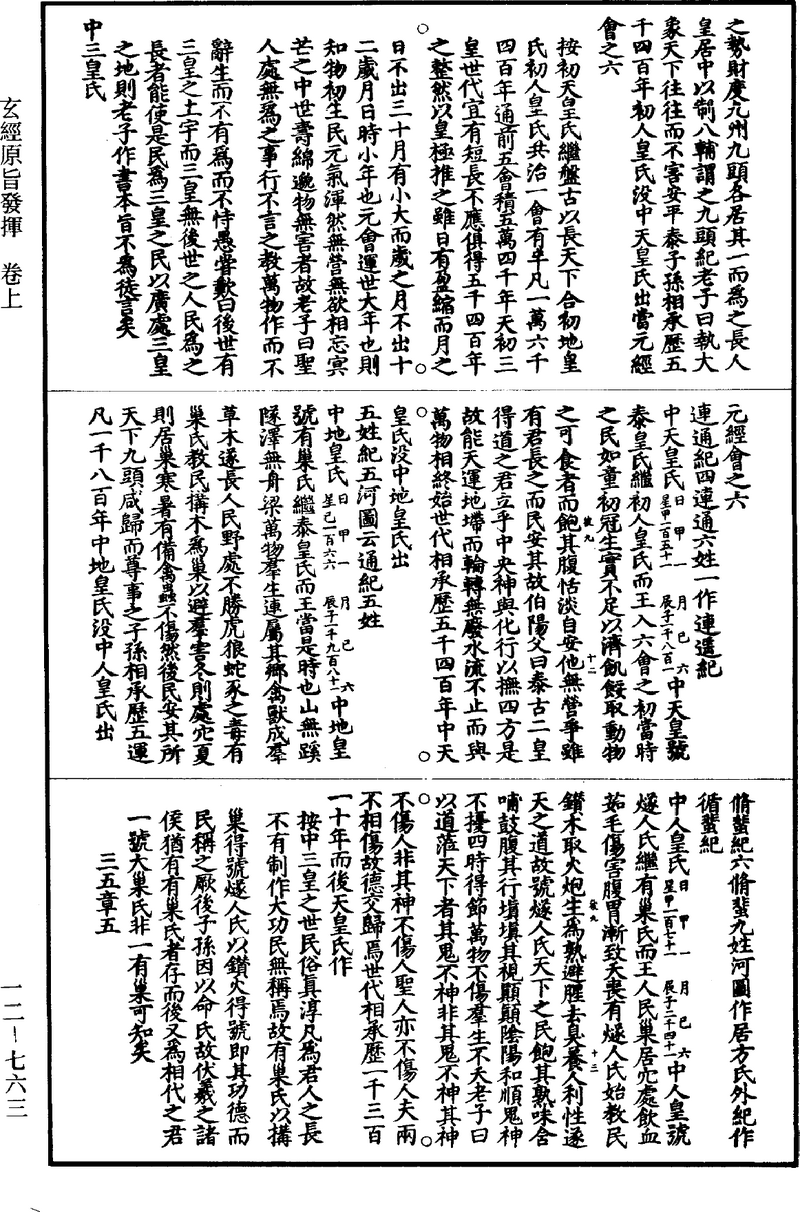 之勢財度九州九頭各居其一而為之長人
皇居中以制八輔謂之九頭紀老子曰執大
象天下往往而不害安平泰子孫相承歷五
千四百年初人皇氏没中天皇氏出當元經
會之六
按初天皇氏繼盤古以長天下合初地皇
氏初人皇氏共治一會有半凡一萬六千
四百年通前五會積五萬四千年天初三
皇世代宜有短長不應俱得五千四百年
之整然以皇極推之雖日有盈縮而月之
日不出三十月有小大而歲之月不出十
二歲月日時小年也元會運世大年也則
知物初生民元氣渾然無營無欲相忘冥
芒之中世壽綿邈物無害者故老子曰聖
人處無為之事行不言之教萬物作而不
辭生而不有為而不恃愚嘗歎曰後世有
三皇之土宇而三皇無後世之人民為之
長者能使是民為三皇之民以廣處三皇
之地則老子作書本旨不為徒言矣
中三皇氏
元經會之六
連通紀四連通六姓一作連逋紀
中天皇氏日甲一 月巳六 星甲一百五十一 辰子一千八百一 中天皇號
泰皇氏繼初人皇氏而王入六會之初當時
之民如童初冠生實不足以濟飢餒取動物
之可食者而飽其腹恬淡自安他無營爭雖
有君長之而民安其故伯陽父曰泰古二皇
得道之君立乎中央神與化行以撫四方是
故能天運地墆而輪轉無廢水流不止而與
萬物相終始世代相承歷五千四百年中天
皇氏没中地皇氏出
五姓紀五河圖云通紀五姓
中地皇氏日甲一 月巳六 星己一百六六 辰子一千九百八十一 中地皇
號有巢氏繼泰皇氏而王當是時也山無蹊
隧澤無舟梁萬物羣生連屬其鄉禽獸成羣
草木遂長人民野處不勝虎狼蛇豕之毒有
巢氏教民搆木為巢以避羣害冬則處穴夏
則居巢寒暑有備禽蟲不傷然後民安其所
天下九頭咸歸而尊事之子孫相承歷五運
凡一千八百年中地皇氏没中人皇氏出
脩蜚紀六脩蜚九姓河圖作居方氏外紀作
循蜚紀
中人皇氏日甲一 月巳六 星甲一百七十一 辰子二千四十一 中人皇號
燧人氏繼有巢氏而王人民巢居穴處飲血
茹毛傷害腹胃漸致夭喪有燧人氏始教民
鑚木取火炮生為熟避腥去臭養人利性遂
天之道故號燧人氏天下之民飽其熟味含
哺鼓腹其行塡塡其視顚顚陰陽和順鬼神
不擾四時得節萬物不傷羣生不夭老子曰
以道蒞天下者其鬼不神非其鬼不神其神
不傷人非其神不傷人聖人亦不傷人夫兩
不相傷故德交歸焉世代相承歷一千三百
一十年而後天皇氏作
按中三皇之世民俗真淳凡為君人之長
不有制作大功民無稱焉故有巢氏以搆
巢得號燧人氏以鑚火得號即其功德而
民稱之厥後子孫因以命氏故伏羲之諸
侯猶有有巢氏者存而後又為相代之君
一號大巢氏非一有巢可知矣
三五章五
玄經原旨發揮 卷上
一二-七六三